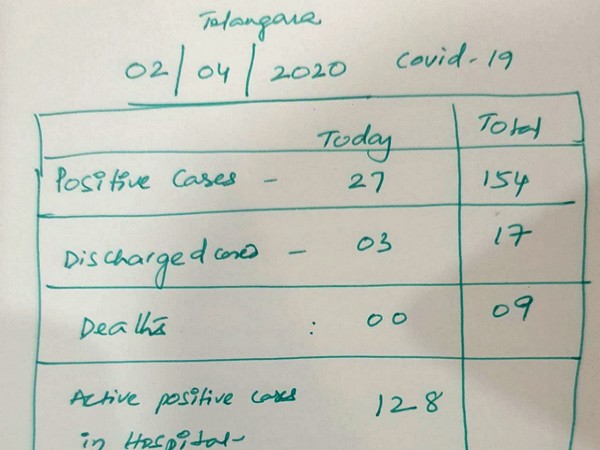 Telangana
02/04/2020 Covid-19
Today Total
Positive Cases - 27 154
Discharged cases - 03 17
Deaths : 00 09
Active positive cases 128
in Hospital-